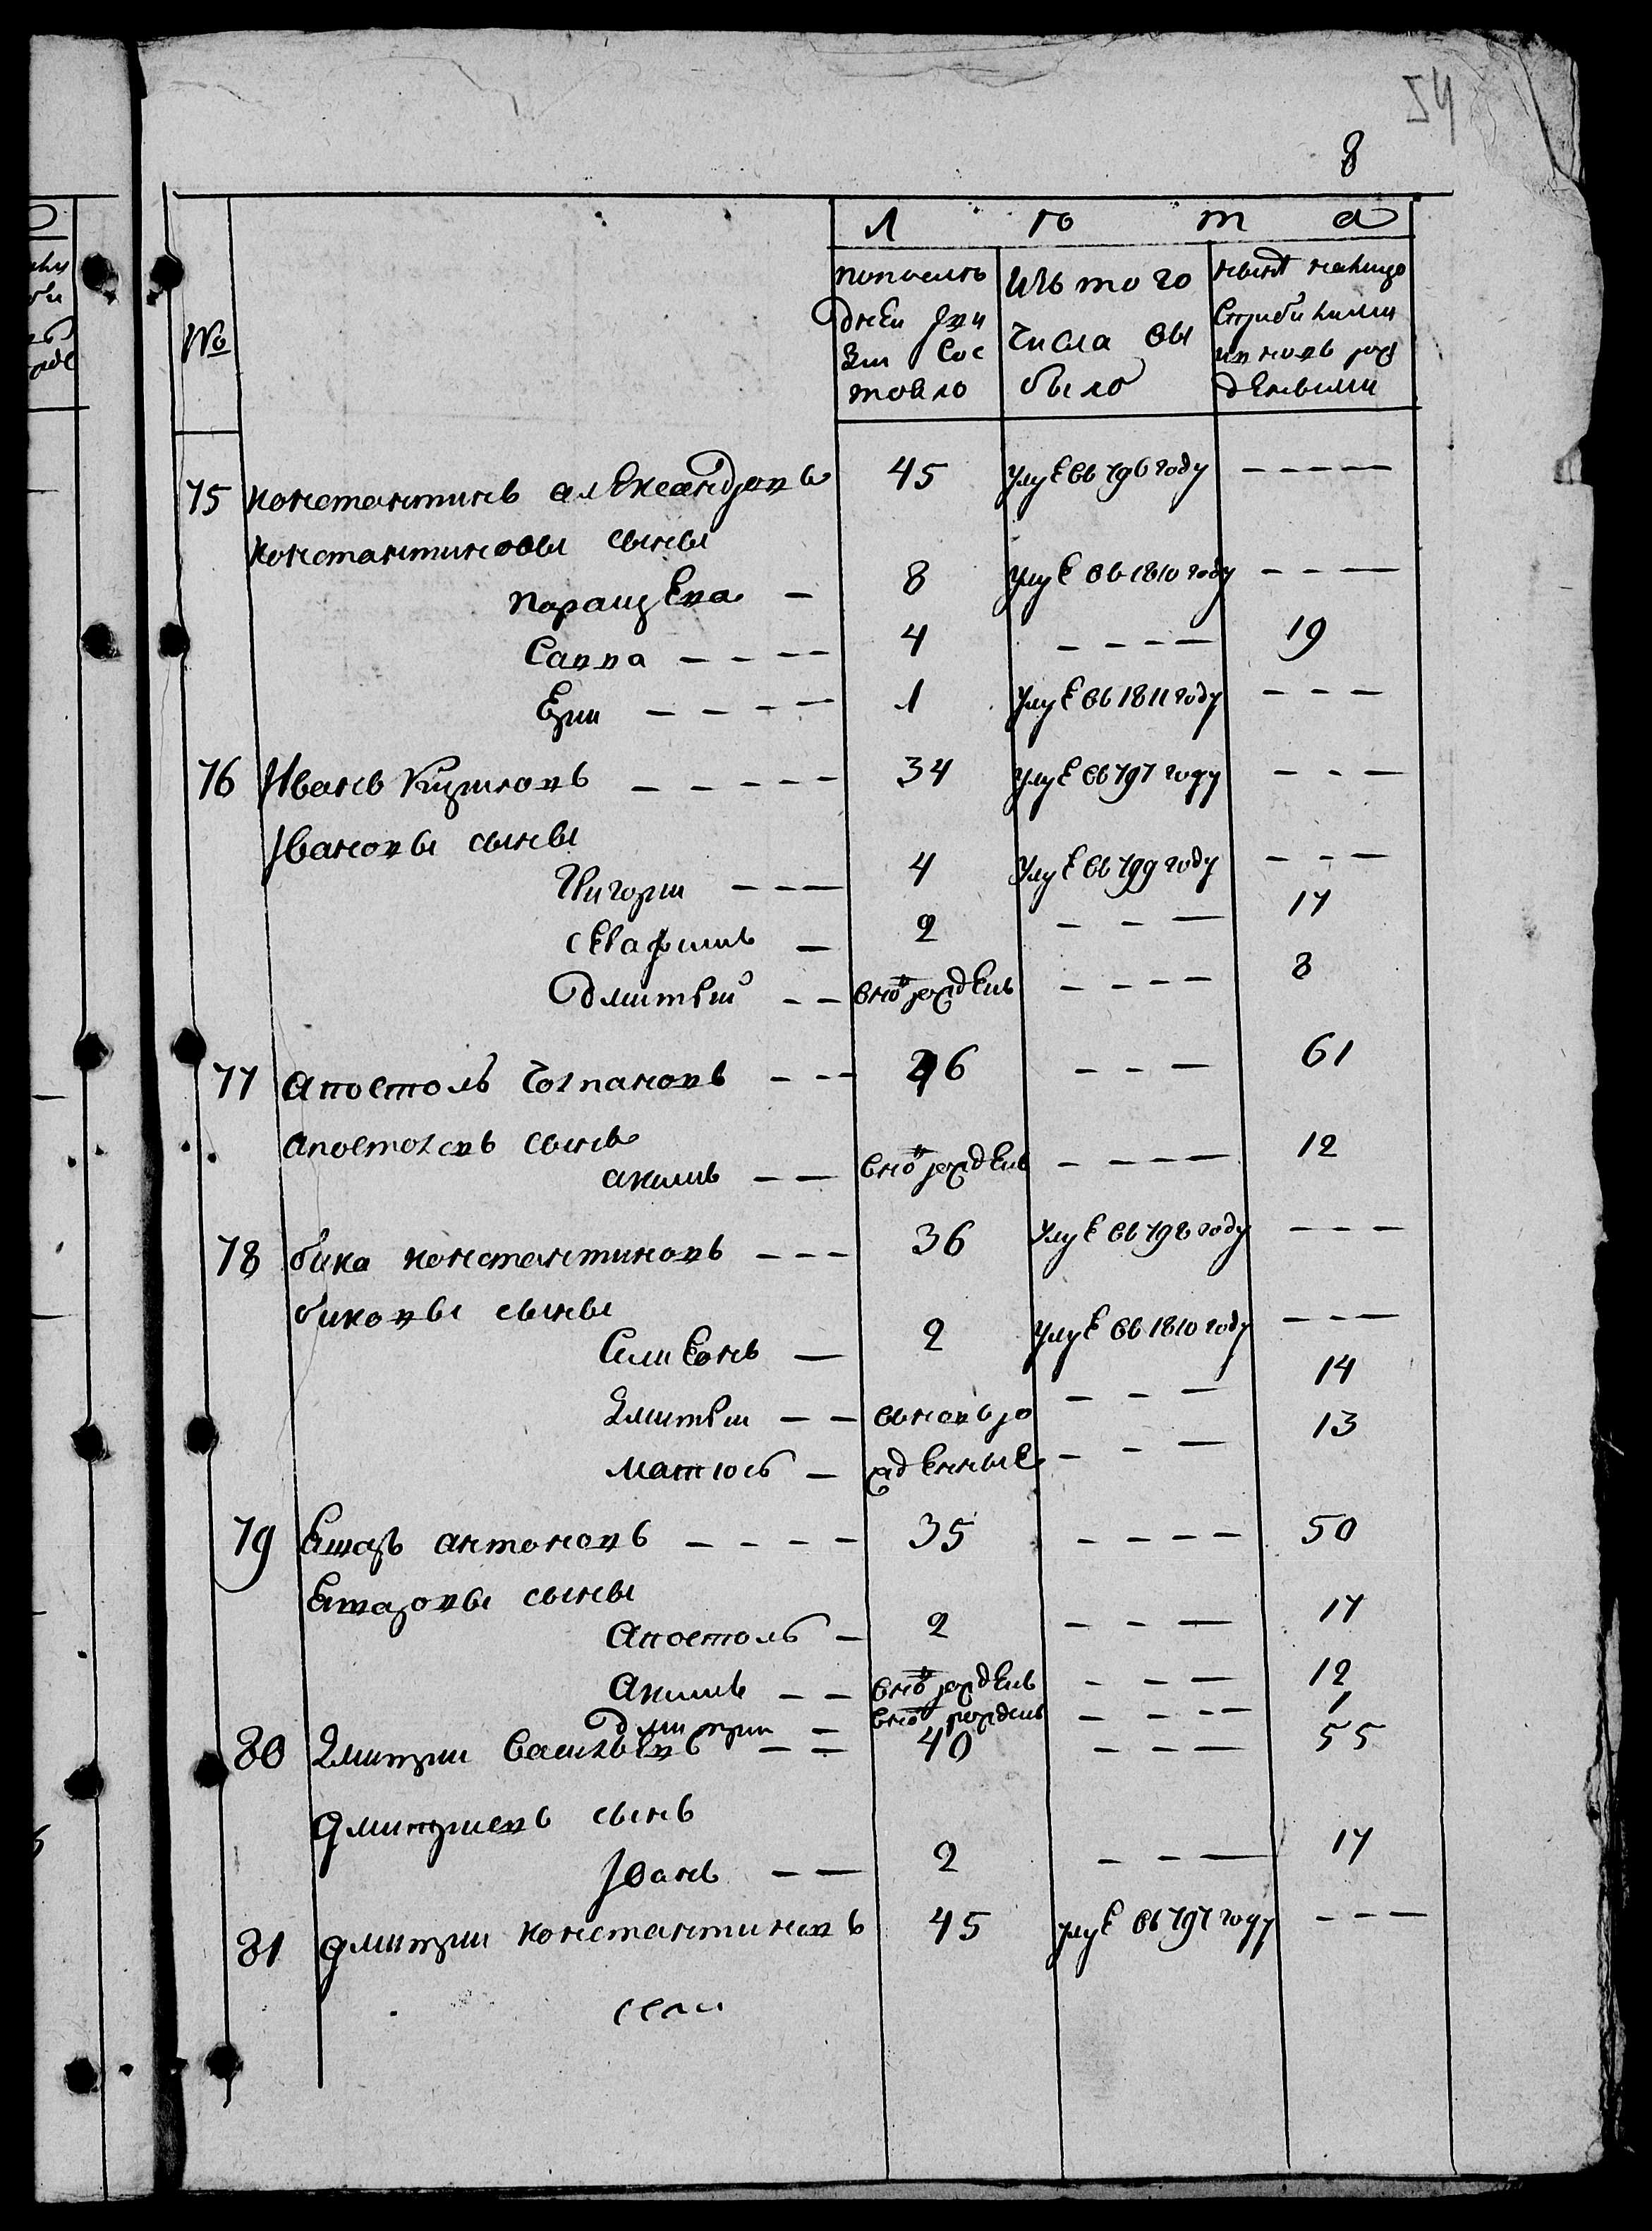 54
8
№
л ѣ т а
попослѣ
дней реви
зіи сос
тояло
изъ того
числа вы
было
нынѣ налицо
75 Константинъ александровъ 45 умре въ 796 году – – – – –
Константиновы сыны
Паращева – 8 умре въ 1810 году – – –
Савва – – – – 4 – – – – 19
– – – – 1 умре въ 1811 году – – –
76 Иванъ – – – – – 34 умре въ 797 году – – –
Ивановы сыны
Григори – – – 4 умре въ 799 году – – –
серафимъ – 2 – – – 17
дмитрий – – вновь рожденъ – – – – 8
77 апостолъ – – – 46 – – – 61
апостоловъ сынъ
акимъ – – вновь рожденъ – – – – 12
78 бика константиновъ – – – 36 умре въ 798 году – – –
биковы сыны
Симеонъ – 2 умре въ 1810 году – – –
Дмитрии – – вновь ро – – – 14
Матюсъ – жденные – – – 13
79 антоновъ – – – – 35 – – – – 50
сыны
апостолъ – 2 – – – 17
акимъ – – вновь рожденъ – – – 12
дмитрии – вновь рожденъ – – – – 1
80 Дмитрии васильевъ – – 40 – – – 55
дмитриевъ сынъ
Иванъ – – 2 – – – 17
81 дмитрии константиновъ 45 умре въ 797 году – – –